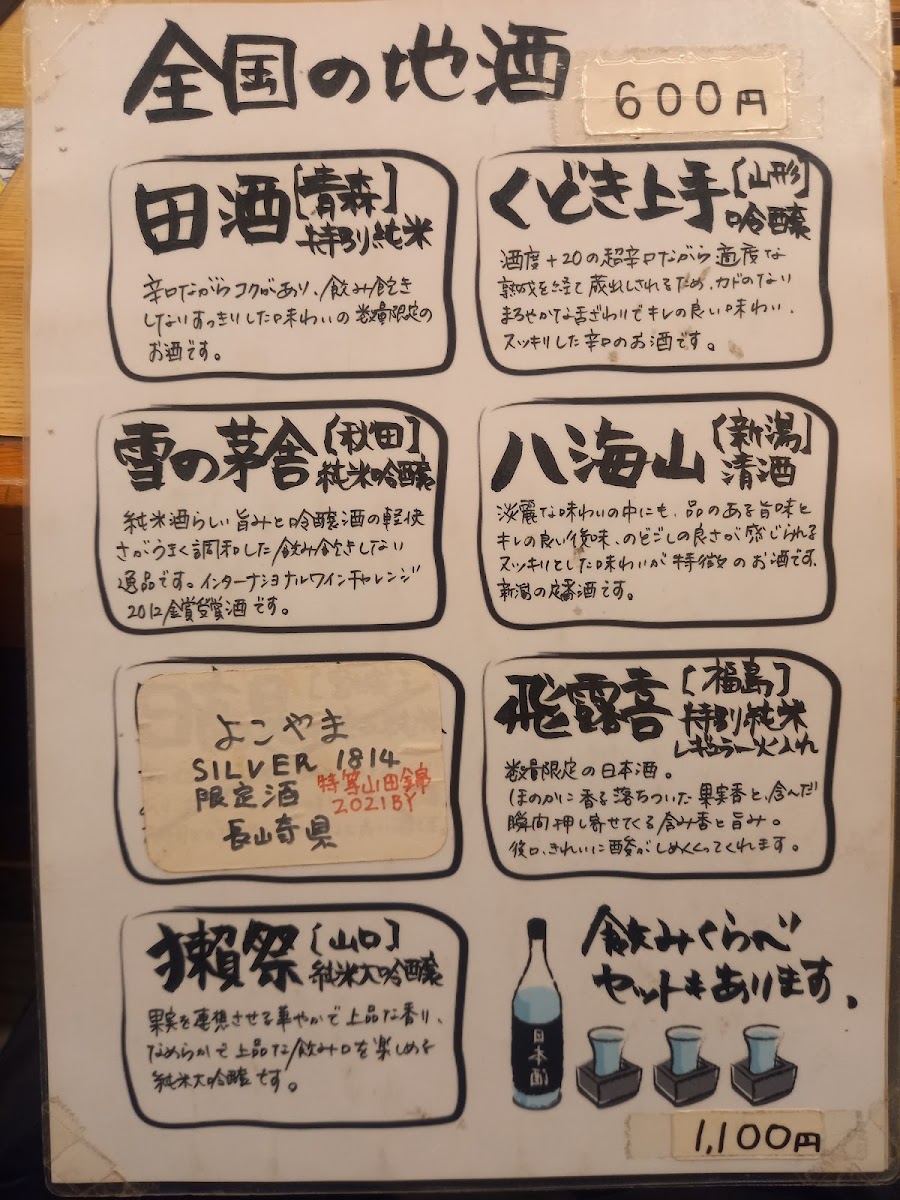 全国の地酒
600円
田酒[青森]
特別純米
辛口ながらコクがあり、飲み飽き
しないすっきりした味わいの数量限定の
お酒です。
くどき上手[山形]
吟醸
酒度+20の超辛口ながら適度な
熟成を経て蔵出しされるため、カドのない
まろやかな舌ざわりでキレの良い味わい、
スッキリした辛口のお酒です。
雪の茅舎[秋田]
純米吟醸
純米酒らしい旨みと吟醸酒の軽快
さがうまく調和した飲み飽きしない
逸品です。インターナショナルワインチャレンジ
2012金賞受賞酒です。
八海山[新潟]
清酒
淡麗な味わいの中にも、品のある旨味と
キレの良い後味、のどごしの良さが感じられる
スッキリとした味わいが特徴のお酒です。
新潟の定番酒です。
よこやま
SILVER 1814
限定酒
特等山田錦
2021BY
長崎県
飛露喜[福島]
特別純米
レギュラー火入れ
数量限定の日本酒。
ほのかに香る落ちついた果実香と、含んだ
瞬間押し寄せてくる含み香と旨み。
後口、きれいに酸がしめくくってくれます。
獺祭[山口]
純米大吟醸
果実を連想させる華やかで上品な香り、
なめらかで上品な飲み口を楽しめる
純米大吟醸です。
飲みくらべ
セットもあります。
日本酒
1,100円